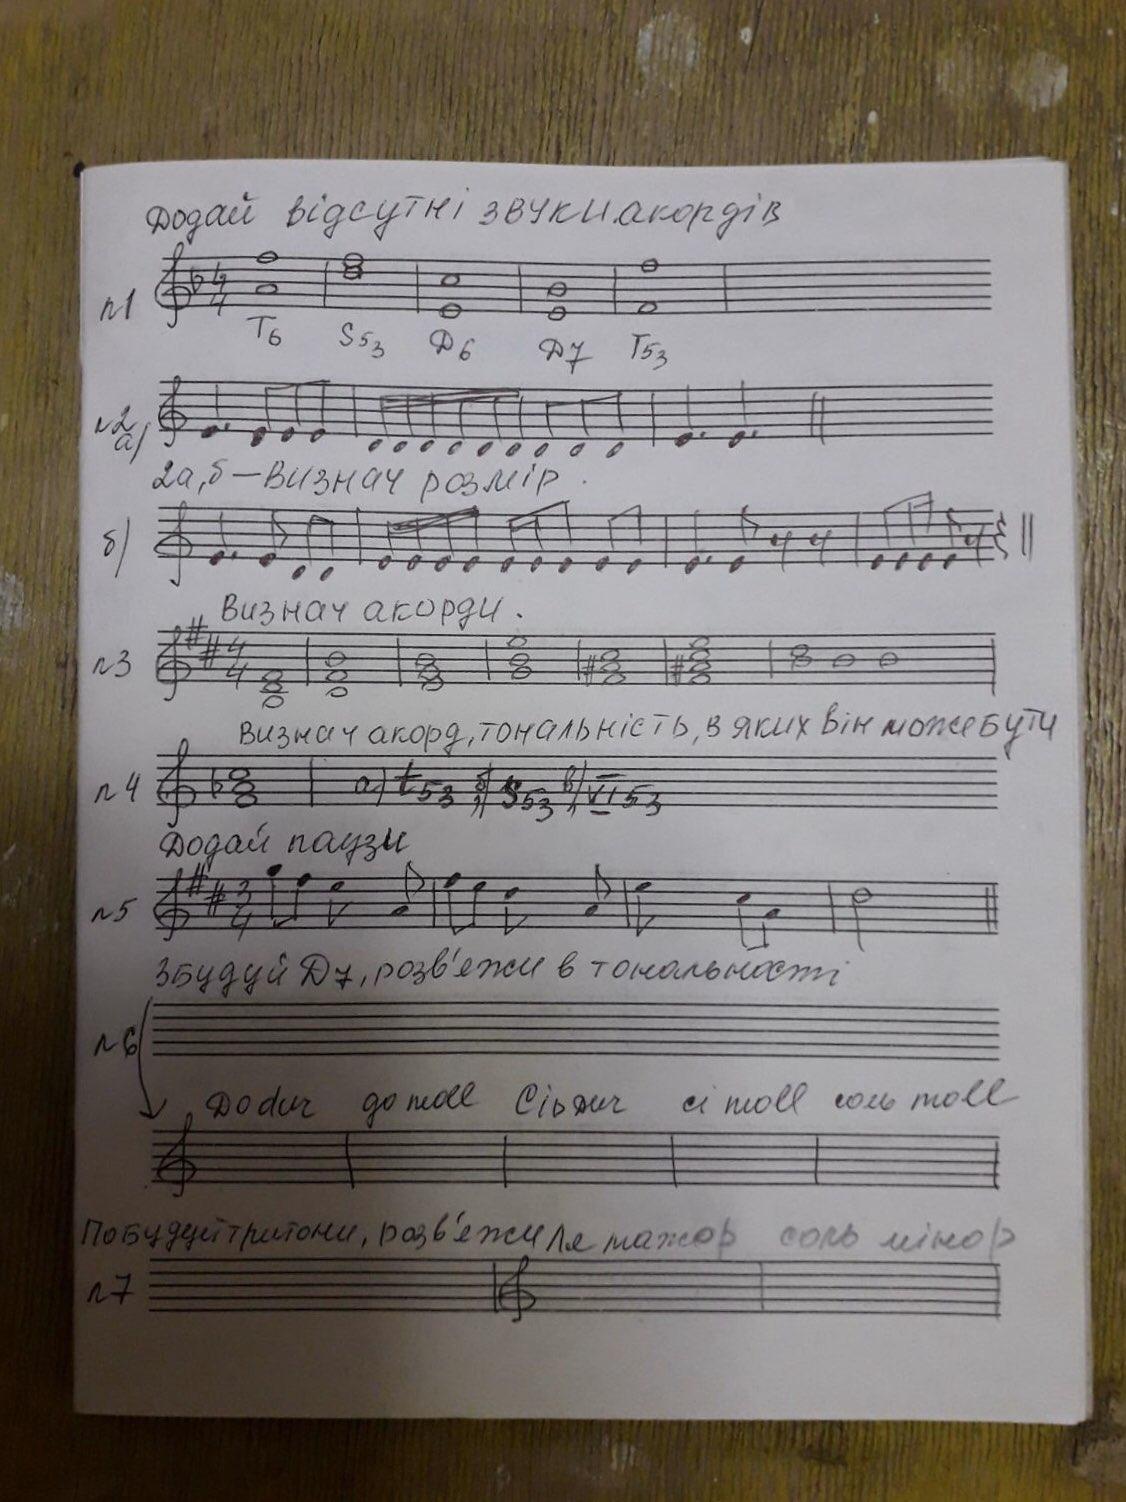 Додай відсутні звуки акордів
п1
4 4
T6 S53 D6 D7 T53
п2
а)
2а,б – Визнач розмір.
б)
Визнач акорди.
п3
4 4
Визнач акорд, тональність, в яких він може бути
п4 а) t53 б) S53 в) VI53
Додай паузи
п5
3 4
Збудуй D7, розв'яжи в тональності
п6
До dur до moll Сіь dur сі moll соль moll
Побудуй тритони, розв'яжи Ля мажор соль мінор
п7